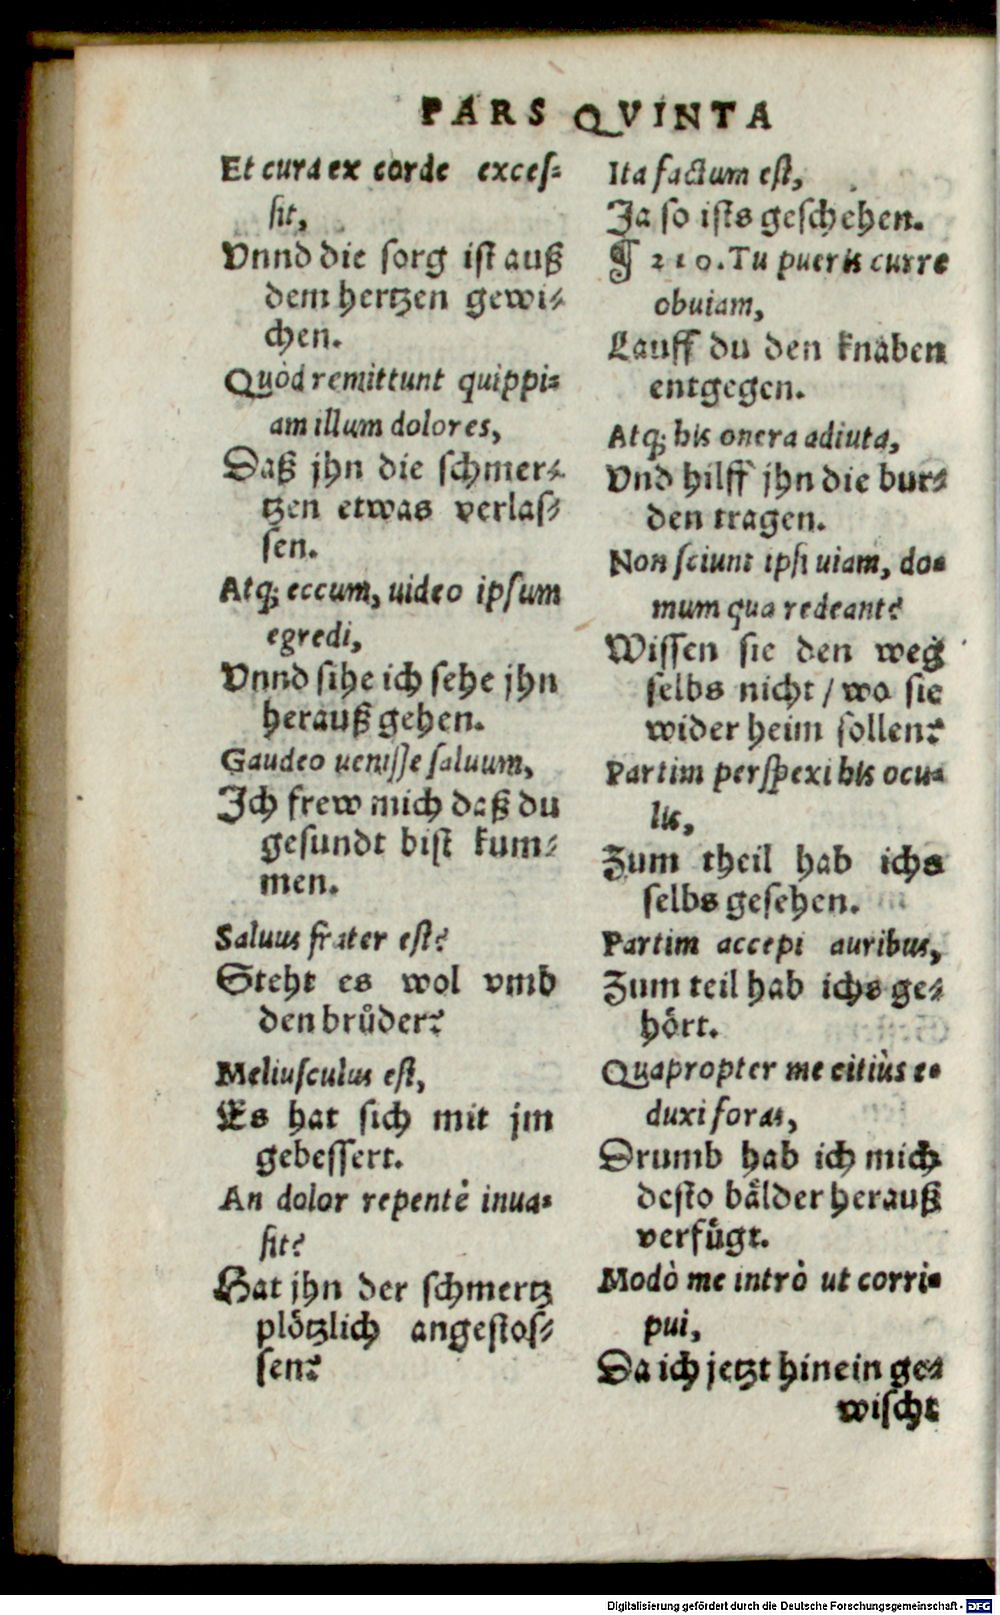 PARS QVINTA
Et cura ex corde exces-
sit,
Vnnd die sorg ist auß
dem hertzen gewi-
chen.
Quòd remittunt quippi-
am illum dolores,
Daß jhn die schmer-
tzen etwas verlas-
sen.
Atq; eccum, uideo ipsum
egredi,
Vnnd sihe ich sehe jhn
herauß gehen.
Gaudeo uenisse saluum,
Ich frew mich daß du
gesundt bist kum-
men.
Saluus frater est?
Steht es wol vmb
den brůder?
Meliusculus est,
Es hat sich mit jm
gebessert.
An dolor repentè inua-
sit?
Hat jhn der schmertz
plötzlich angestos-
sen?
Ita factum est,
Ja so ists geschehen.
¶ 210. Tu pueris curre
obuiam,
Lauff du den knaben
entgegen.
Atq; his onera adiuta,
Vnd hilff jhn die bur-
den tragen.
Non sciunt ipsi uiam, do-
mum qua redeant?
Wissen sie den weg
selbs nicht / wo sie
wider heim sollen?
Partim perspexi his ocu-
lis,
Zum theil hab ichs
selbs gesehen.
Partim accepi auribus,
Zum teil hab ichs ge-
hört.
Quapropter me citiùs e-
duxi foras,
Drumb hab ich mich
desto bälder herauß
verfügt.
Modò me intrò ut corri-
pui,
Da ich jetzt hinein ge-
wischt
Digitalisierung gefördert durch die Deutsche Forschungsgemeinschaft - DFG